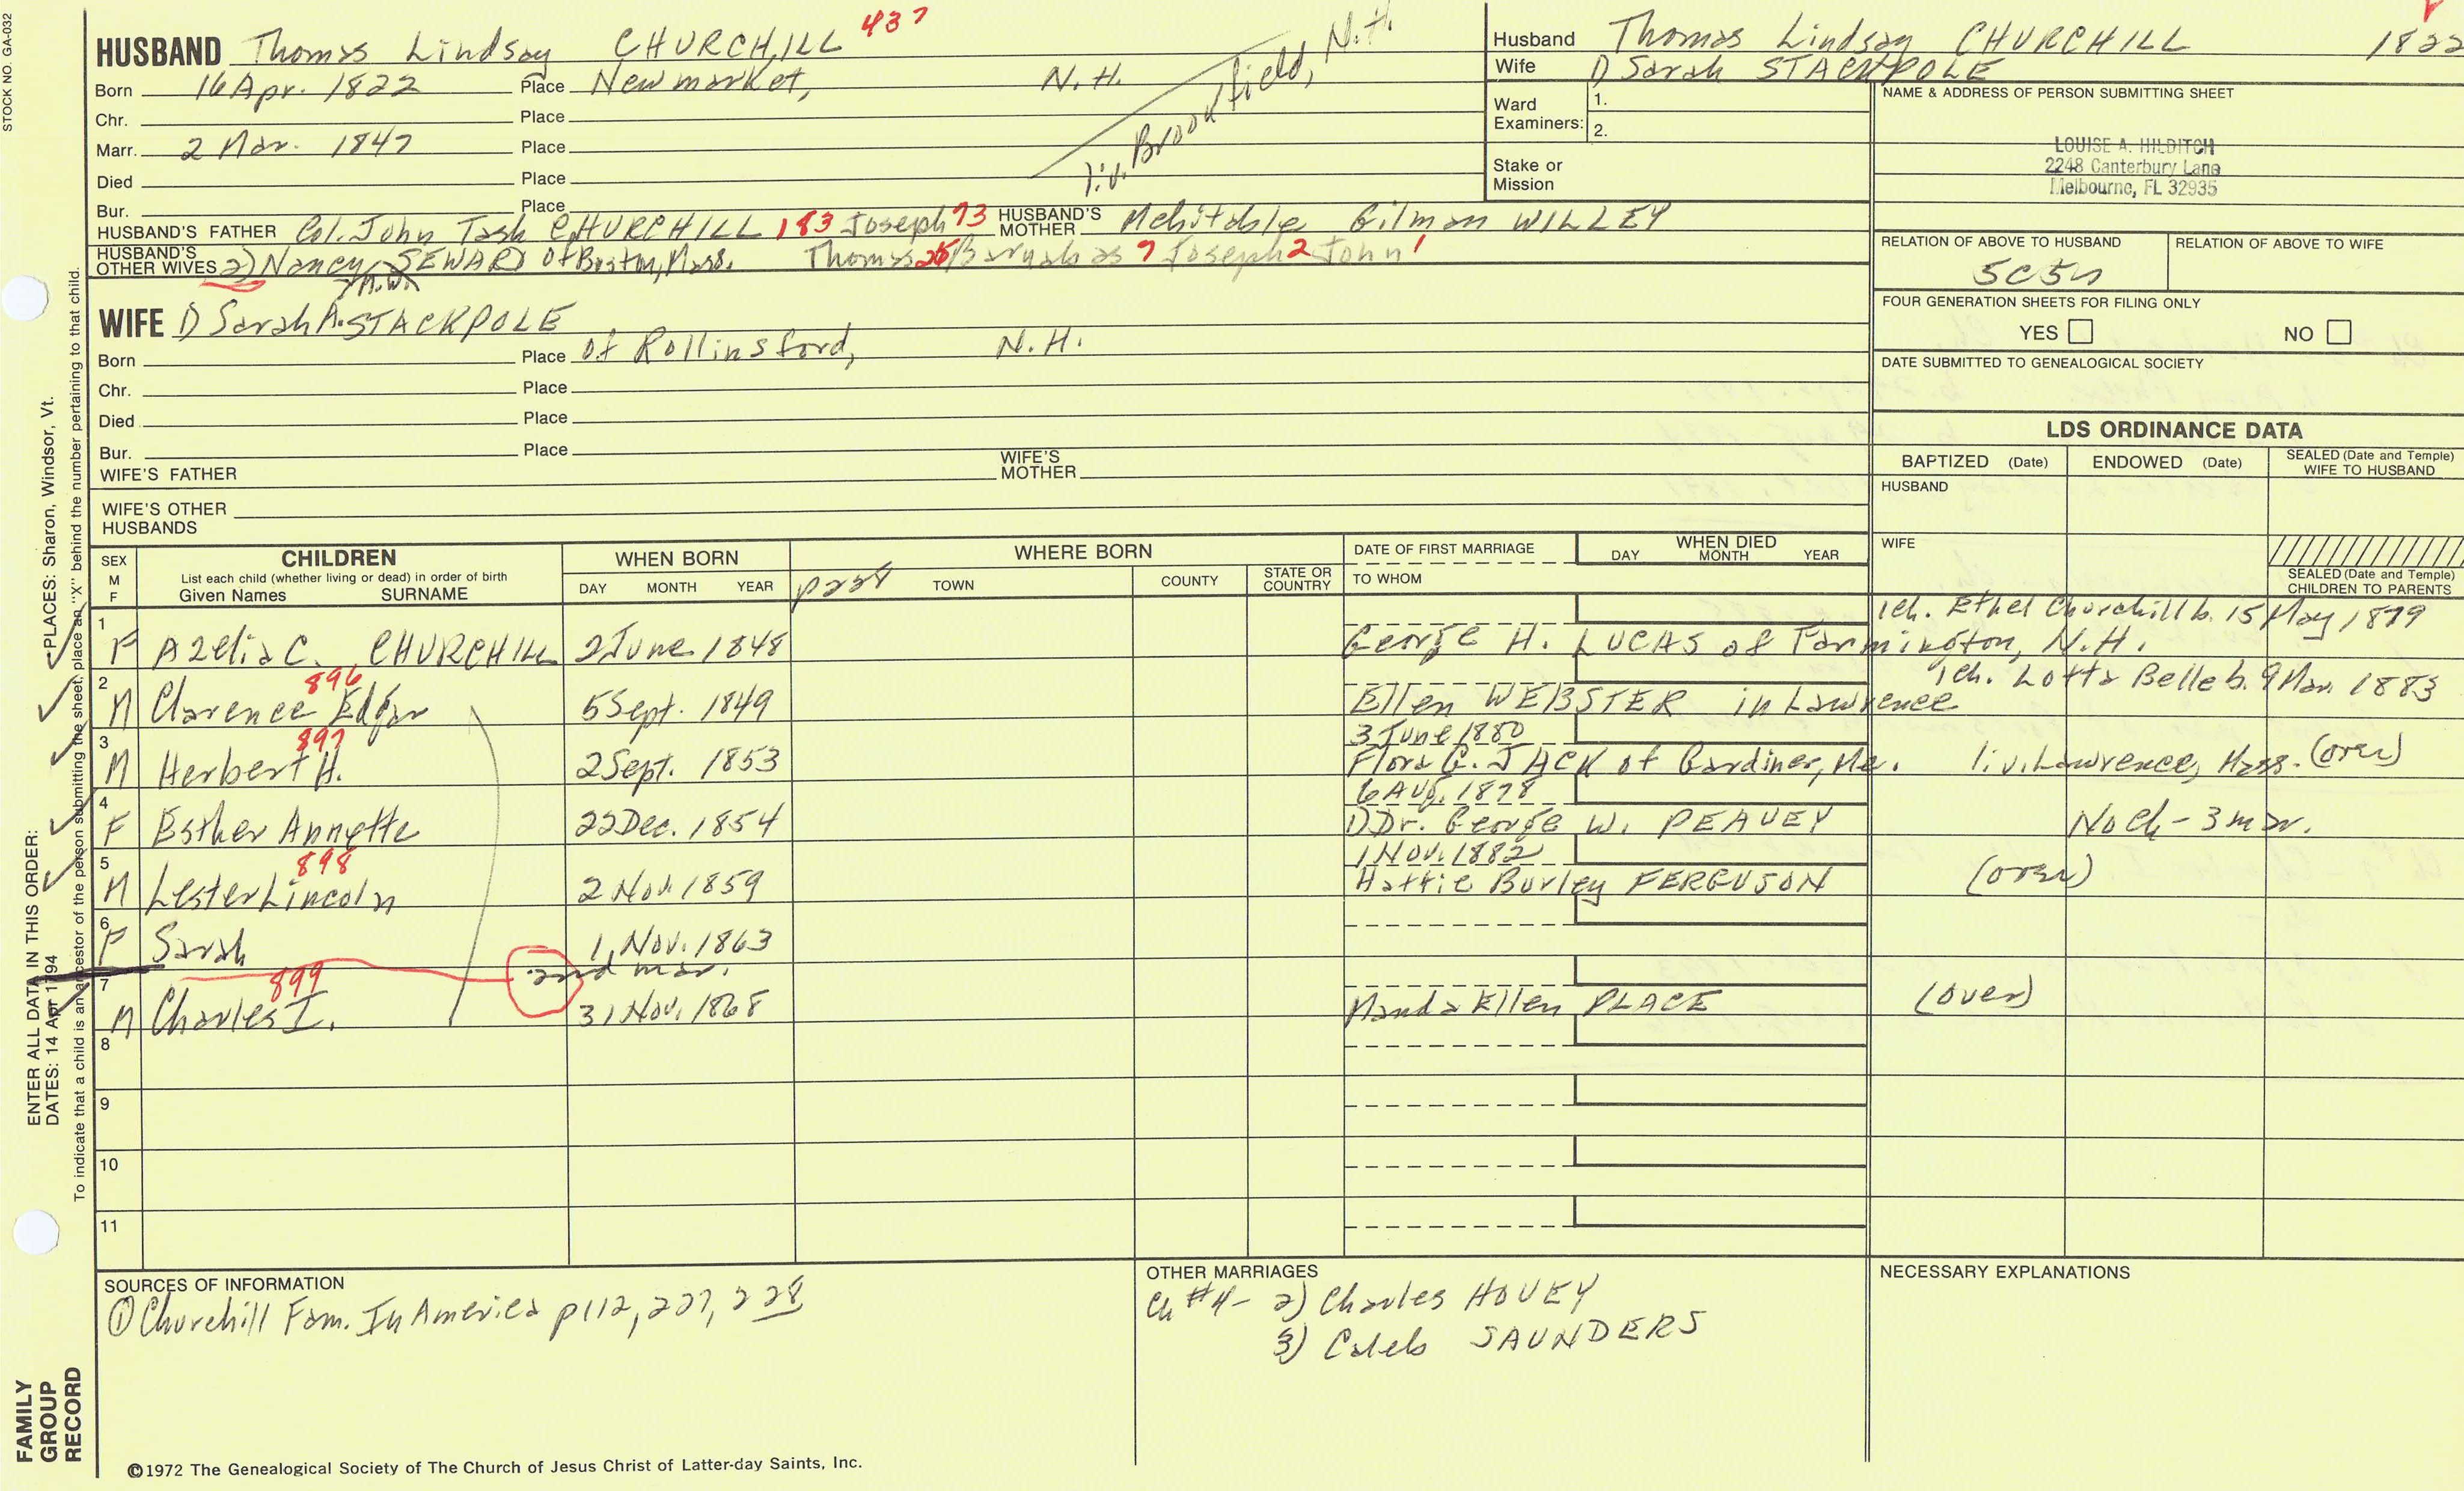 STOCK NO. GA-032
HUSBAND Thomas Lindsay CHURCHILL 437
Born 16 Apr. 1822 Place Newmarket, N.H.
Chr. Place
Marr. 2 Mar. 1847 Place
Died Place
Bur. Place
liv. Brookfield, N.H.
HUSBAND'S FATHER Col. John Tash CHURCHILL 183 Joseph 73 HUSBAND'S MOTHER Mehitable Gilman WILLEY
HUSBAND'S OTHER WIVES 2) Nancy SEWARD of Boston, Mass. Thomas 25 Barnabas 7 Joseph 2 John 1
WIFE 1) Sarah A. STACKPOLE
Born Place of Rollinsford, N.H.
Chr. Place
Died Place
Bur. Place
WIFE'S FATHER WIFE'S MOTHER
WIFE'S OTHER HUSBANDS
Husband Thomas Lindsay CHURCHILL 1822
Wife 1) Sarah STACKPOLE
Ward Examiners: 1.
2.
Stake or Mission
NAME & ADDRESS OF PERSON SUBMITTING SHEET
LOUISE A. HILDITCH
2248 Canterbury Lane
Melbourne, FL 32935
RELATION OF ABOVE TO HUSBAND RELATION OF ABOVE TO WIFE
5C5n
FOUR GENERATION SHEETS FOR FILING ONLY
YES NO
DATE SUBMITTED TO GENEALOGICAL SOCIETY
LDS ORDINANCE DATA
BAPTIZED (Date) ENDOWED (Date) SEALED (Date and Temple) WIFE TO HUSBAND
HUSBAND
WIFE
SEALED (Date and Temple) CHILDREN TO PARENTS
SEX M F CHILDREN WHEN BORN WHERE BORN DATE OF FIRST MARRIAGE WHEN DIED
List each child (whether living or dead) in order of birth
Given Names SURNAME DAY MONTH YEAR p228 TOWN COUNTY STATE OR COUNTRY TO WHOM DAY MONTH YEAR
1 F Azelia C. CHURCHILL 2 June 1848 George H. LUCAS of Farmington, N.H. 1ch. Ethel Churchill b. 15 May 1879
2 M Clarence Edgar 896 5 Sept. 1849 Ellen WEBSTER in Lawrence 1ch. Lotta Belle b. 9 Mar. 1883
3 M Herbert H. 897 2 Sept. 1853 3 June 1880 Flora G. JACK of Gardiner, Me. liv. Lawrence, Mass. (over)
4 F Esther Annette 22 Dec. 1854 6 Aug. 1878 1) Dr. George W. PEAVEY No ch - 3 mar.
5 M Lester Lincoln 898 2 Nov 1859 1 Nov. 1882 Hattie Burley FERGUSON (over)
6 F Sarah 1, Nov. 1863
2nd mar.
7 M Charles I. 899 31 Nov. 1868 Manda Ellen PLACE (over)
8
9
10
11
SOURCES OF INFORMATION
① Churchill Fam. In America p112, 227, 228
OTHER MARRIAGES
Ch #4 - 2) Charles HOVEY
3) Caleb SAUNDERS
NECESSARY EXPLANATIONS
ENTER ALL DATA IN THIS ORDER:
DATES: 14 Apr 1794 PLACES: Sharon, Windsor, Vt.
To indicate that a child is an ancestor of the person submitting the sheet, place an "X" behind the number pertaining to that child.
FAMILY
GROUP
RECORD
©1972 The Genealogical Society of The Church of Jesus Christ of Latter-day Saints, Inc.